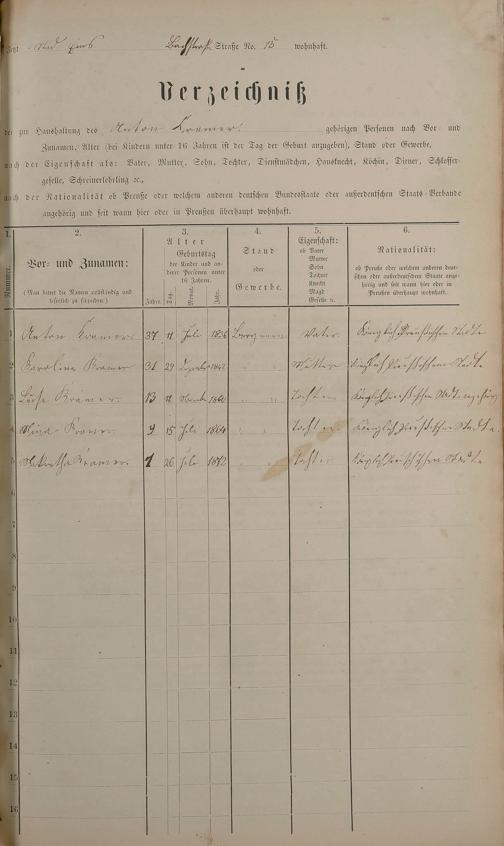 Bad Ems Bachstraße Straße No. 15 wohnhaft.
Verzeichniß
der zur Haushaltung des Anton Kramer gehörigen Personen nach Vor- und
Zunamen, Alter (bei Kindern unter 16 Jahren ist der Tag der Geburt anzugeben), Stand oder Gewerbe,
nach der Eigenschaft als: Vater, Mutter, Sohn, Tochter, Dienstmädchen, Hausknecht, Köchin, Diener, Schlosser-
geselle, Schreinerlehrling ꝛc.,
nach der Nationalität ob Preuße oder welchem anderen deutschen Bundesstaate oder außerdeutschen Staats-Verbande
angehörig und seit wann hier oder in Preußen überhaupt wohnhaft.
1. 2. 3. 4. 5. 6.
Nummer.
Vor- und Zunamen:
(Man bittet die Namen vollständig und
leserlich zu schreiben.)
Alter
Geburtstag
der Kinder und an-
derer Personen unter
16 Jahren.
Jahre. Tag. Monat. Jahr.
Stand
oder
Gewerbe.
Eigenschaft:
ob Vater
Mutter
Sohn
Tochter
Knecht
Magd
Geselle ꝛc.
Nationalität:
ob Preuße oder welchem anderen deut-
schen oder außerdeutschen Staate ange-
hörig und seit wann hier oder in
Preußen überhaupt wohnhaft.
1 Anton Kramer 37 11 Juli 1836 Bergmann Vater Königlich Preußischen Staate
2 Karolina Kramer 31 29 1842 " " Mutter Königlich Preußischen Staate
3 Luise Kramer 13 11 1860 " " Tochter Königlich Preußischen Staate angehörig
4 Mina Kramer 9 15 Juli 1864 " " Tochter Königlich Preußischen Staate
5 Kramer 1 26 Juli 1872 " " Tochter Königlich Preußischen Staate
6
7
8
9
10
11
12
13
14
15
16